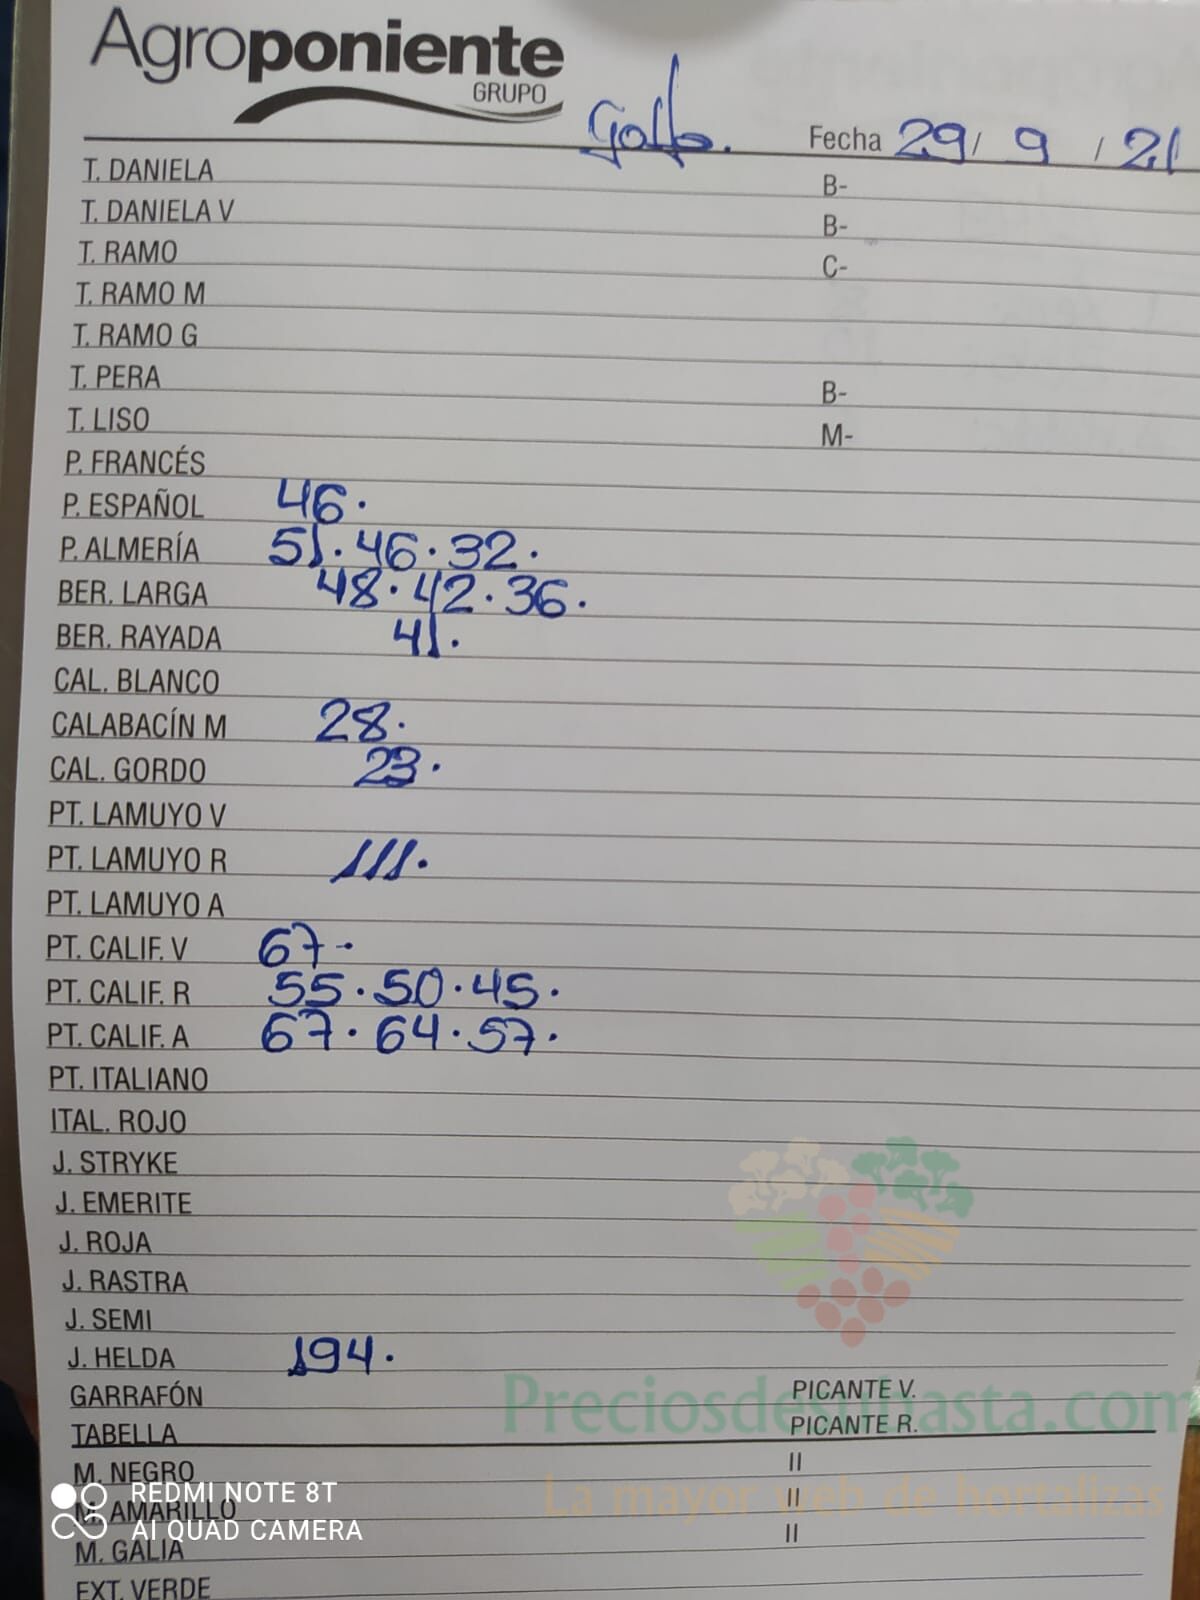 Agroponiente
GRUPO
Golfo. Fecha 29/ 9 / 21
T. DANIELA B-
T. DANIELA V B-
T. RAMO C-
T. RAMO M
T. RAMO G
T. PERA B-
T. LISO M-
P. FRANCÉS
P. ESPAÑOL 46.
P. ALMERÍA 51. 46. 32.
BER. LARGA 48. 42. 36.
BER. RAYADA 41.
CAL. BLANCO
CALABACÍN M 28.
CAL. GORDO 23.
PT. LAMUYO V
PT. LAMUYO R 111.
PT. LAMUYO A
PT. CALIF. V 67.
PT. CALIF. R 55. 50. 45.
PT. CALIF. A 67. 64. 57.
PT. ITALIANO
ITAL. ROJO
J. STRYKE
J. EMERITE
J. ROJA
J. RASTRA
J. SEMI
J. HELDA 194.
GARRAFÓN PICANTE V.
Preciosdesubasta.com
TABELLA PICANTE R.
M. NEGRO II
REDMI NOTE 8T
La mayor web de hortalizas
M. AMARILLO II
AI QUAD CAMERA
M. GALIA II
EXT. VERDE